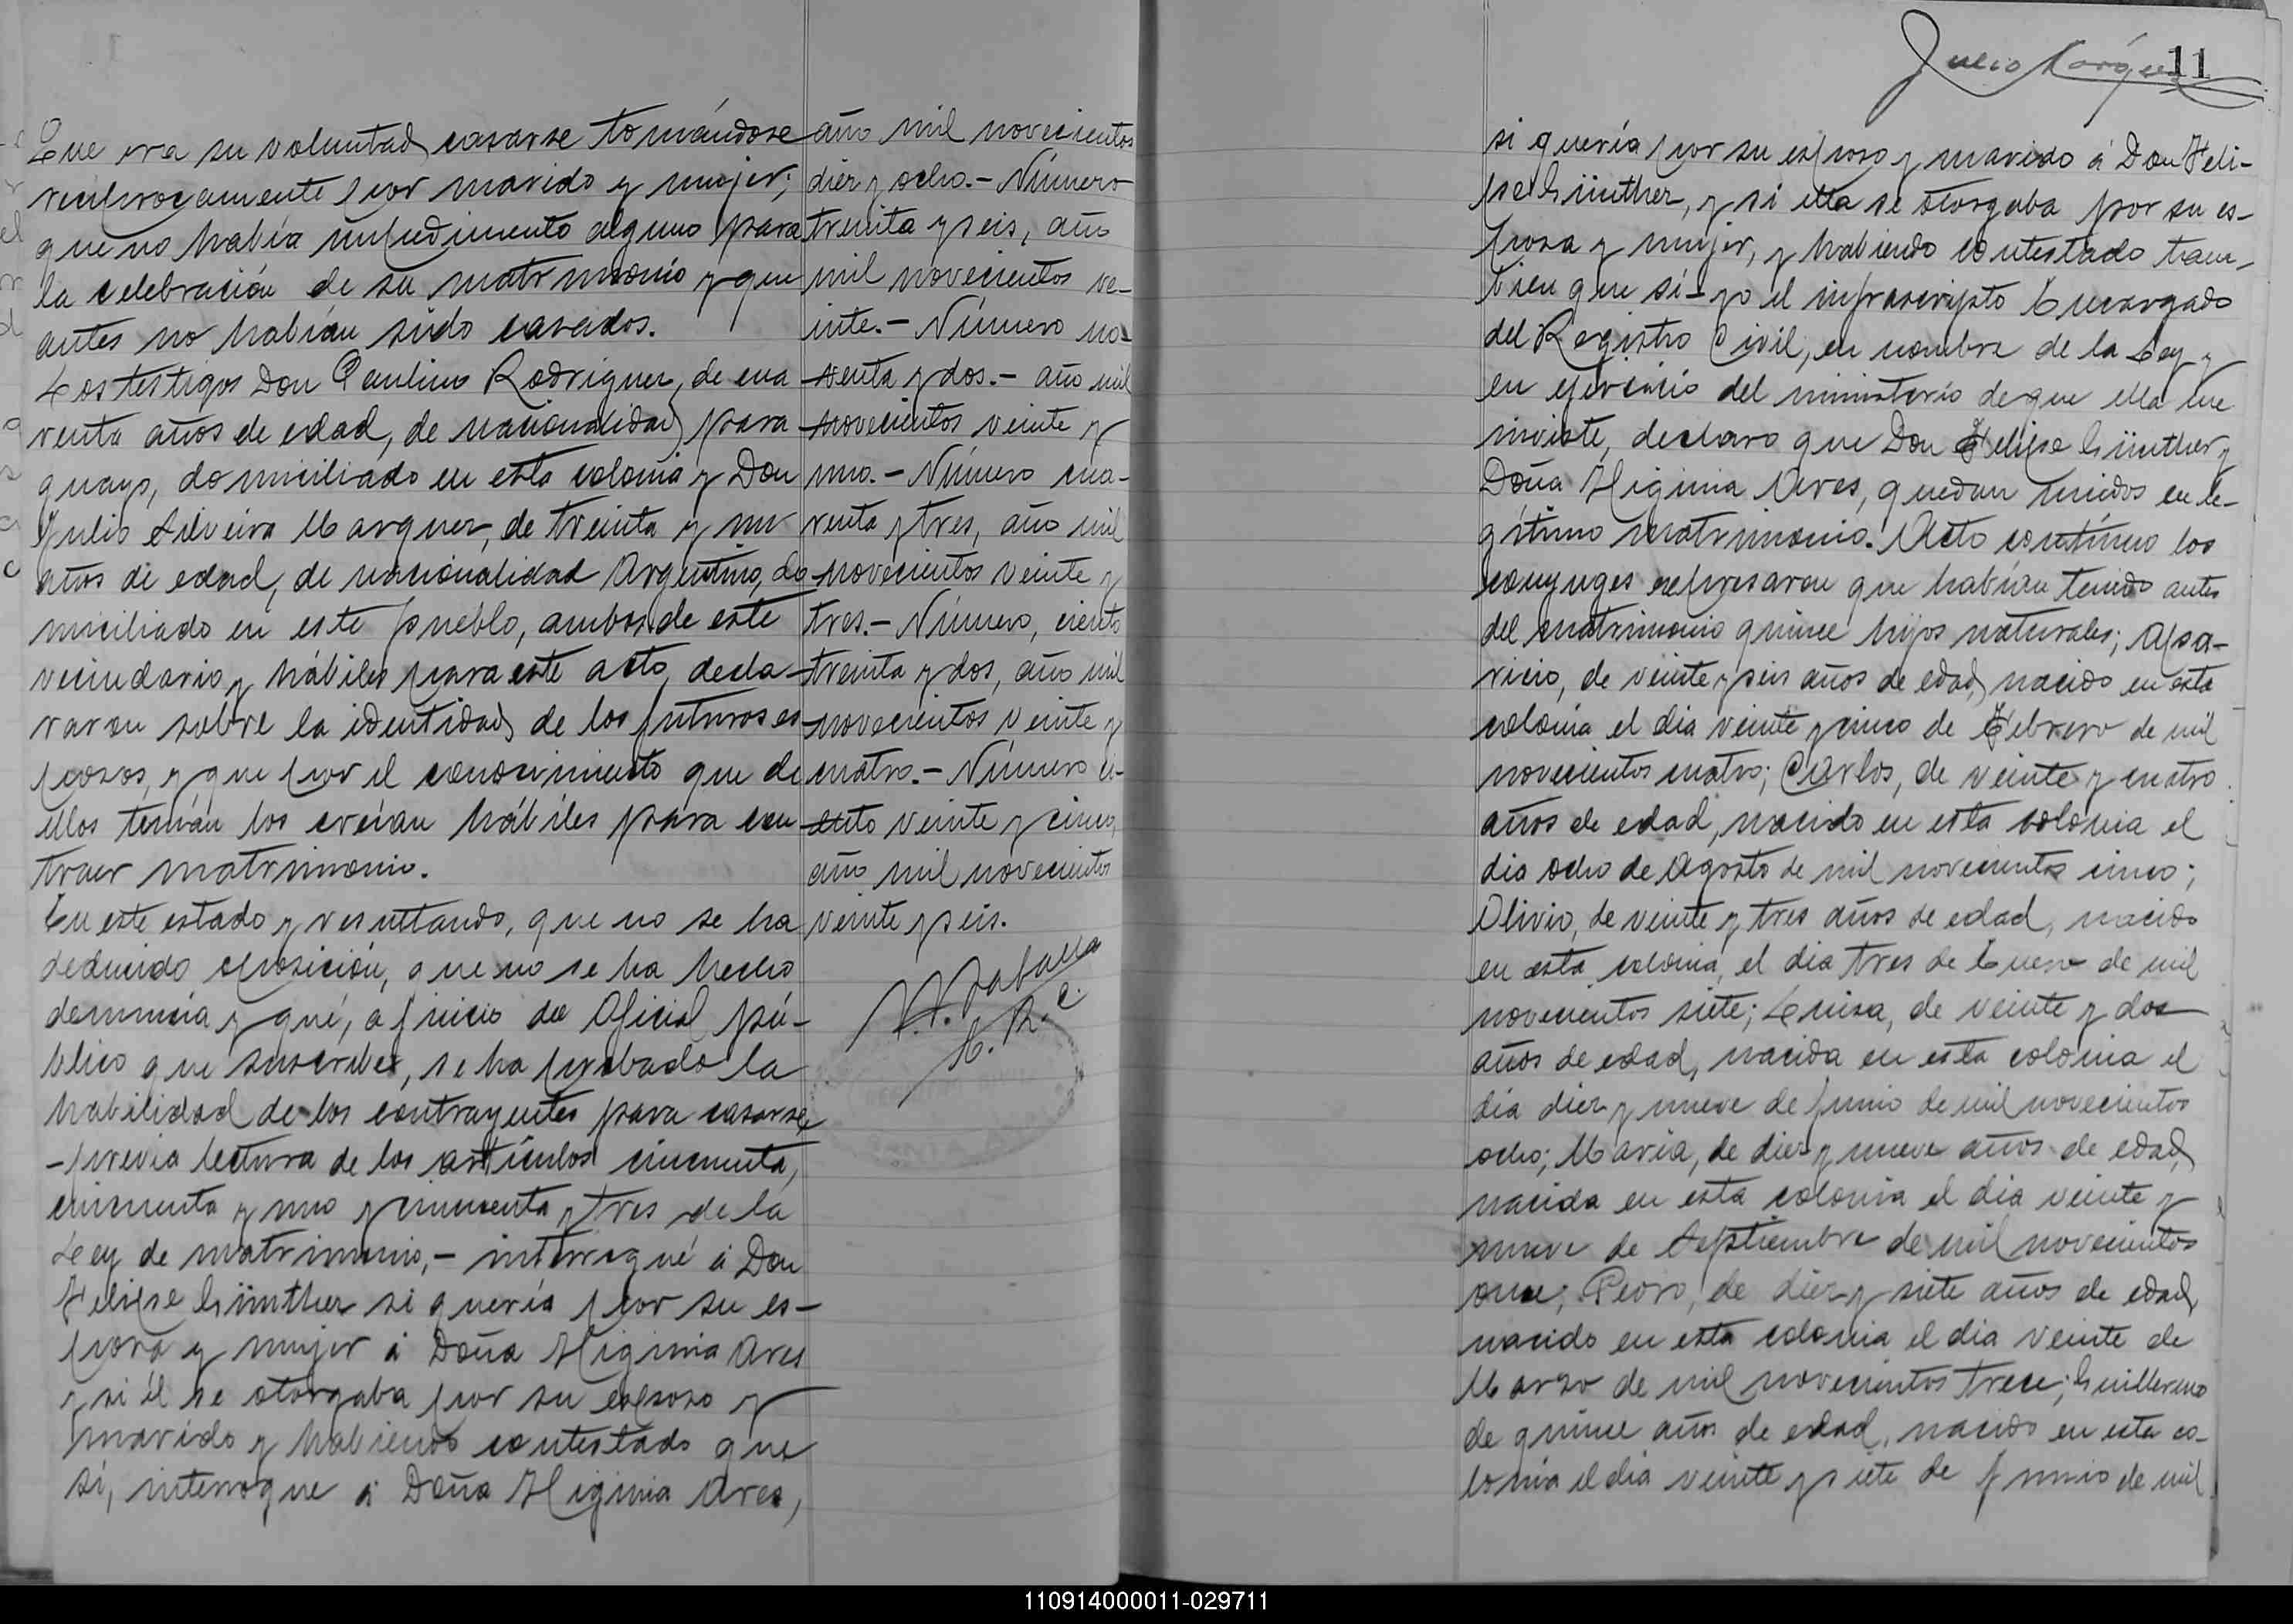 Que era su voluntad casarse tomándose
recíprocamente por marido y mujer;
que no había impedimento alguno para
la celebración de su matrimonio y que
antes no habían sido casados.
Los testigos Don Paulino Rodriguez, de cua
renta años de edad, de nacionalidad para
guayo, domiciliado en esta colonia y Don
Julio Silveira Marquez, de treinta y un
años de edad, de nacionalidad Argentino, do
miciliado en este pueblo, ambos de este
vecindario y hábiles para este acto, decla-
raron sobre la identidad de los futuros es
posos, y que por el conocimiento que de
ellos tenían los creían hábiles para con
traer matrimonio.
En este estado y resultando, que no se ha
deducido oposición, que no se ha hecho
denuncia y qué, a juicio del Oficial pú-
blico que suscribe, se ha probado la
habilidad de los contrayentes para casarse,
-previa lectura de los artículos cincuenta,
cincuenta y uno y cincuenta y tres de la
Ley de matrimonio,- interrogué á Don
Felipe Günther si quería por su es-
posa y mujer á Doña Higinia Ares
y si él se otorgaba por su esposo y
marido y habiendo contestado que
si, interrogue á Doña Higinia Ares,
año mil novecientos
diez y ocho.- Número
treinta y seis, año
mil novecientos ve-
inte.- Número no-
venta y dos.- año mil
novecientos veinte y
uno.- Número cua-
renta y tres, año mil
novecientos veinte y
tres.- Número, ciento
treinta y dos, año mil
novecientos veinte y
cuatro.- Número ci-
ento veinte y cinco,
año mil novecientos
veinte y seis.
Julio Márquez
11
si quería por su esposo y marido á Don Feli-
pe Günther, y si ella se otorgaba por su es-
posa y mujer, y habiendo contestado tam-
bien que si- yo el infrascripto Encargado
del Registro Civil, en nombre de la Ley y
en ejercicio del ministerio de que ella me
inviste, declaro que Don Felipe Günther y
Doña Higinia Ares, quedan unidos en le-
gítimo matrimonio. Acto contínuo los
conyuges expresaron que habían tenido antes
del matrimonio quince hijos naturales; Apa-
ricio, de veinte y seis años de edad, nacido en esta
colonia el dia veinte y cinco de Febrero de mil
novecientos cuatro; Carlos, de veinte y cuatro
años de edad, nacido en esta colonia el
dia ocho de Agosto de mil novecientos cinco;
Olivio, de veinte y tres años de edad, nacido
en esta colonia, el dia tres de Enero de mil
novecientos siete; Luisa, de veinte y dos
años de edad, nacida en esta colonia el
día diez y nueve de junio de mil novecientos
ocho; María, de diez y nueve años de edad,
nacida en esta colonia el dia veinte y
nueve de Septiembre de mil novecientos
once; Pedro, de diez y siete años de edad,
nacido en esta colonia el dia veinte de
Marzo de mil novecientos trece; Guillermo
de quince años de edad, nacido en esta co-
lonia el dia veinte y siete de junio de mil
110914000011-029711